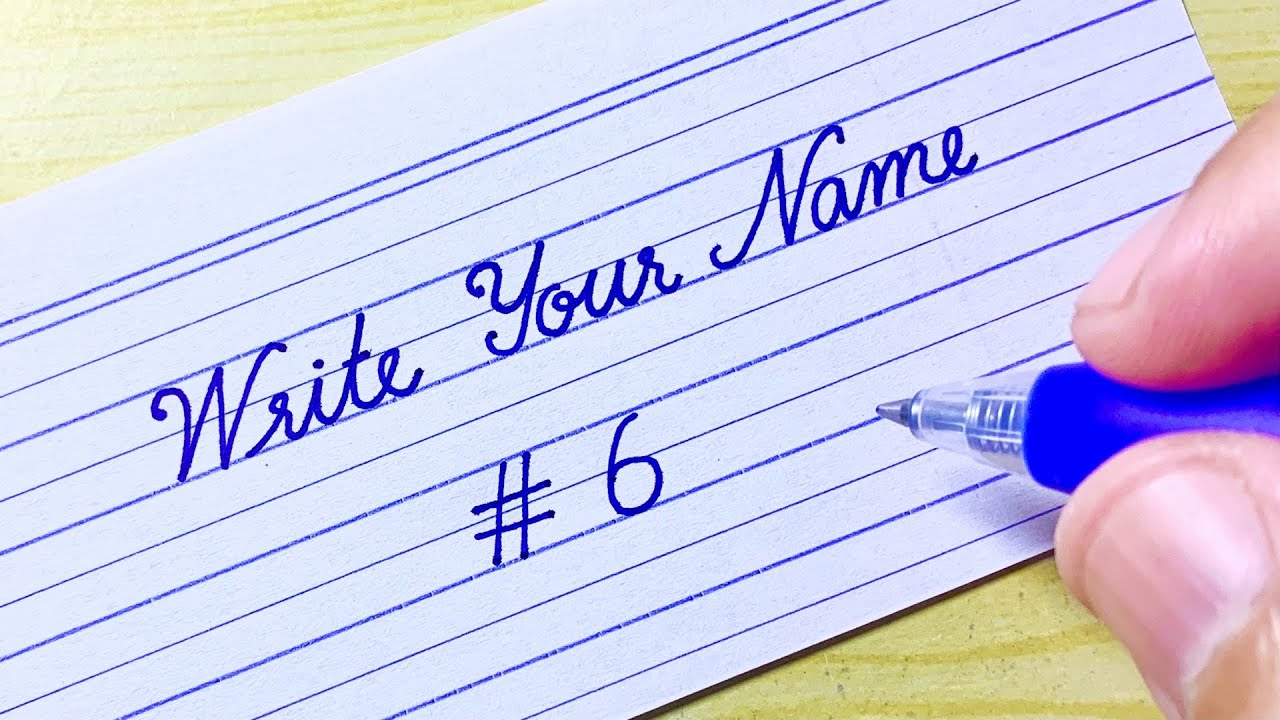 Write Your Name
# 6